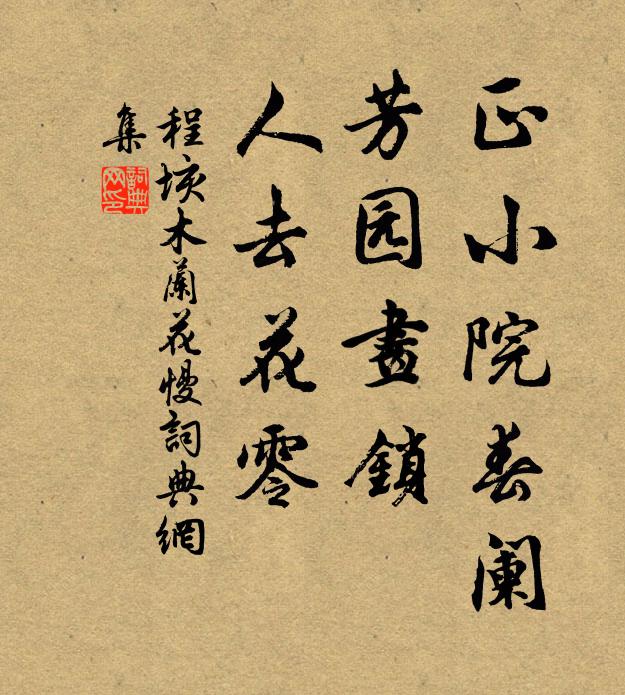 正小院春阑
芳园昼鎖
人去花零
程垓木蘭花慢詞典網
集
詞典
网印